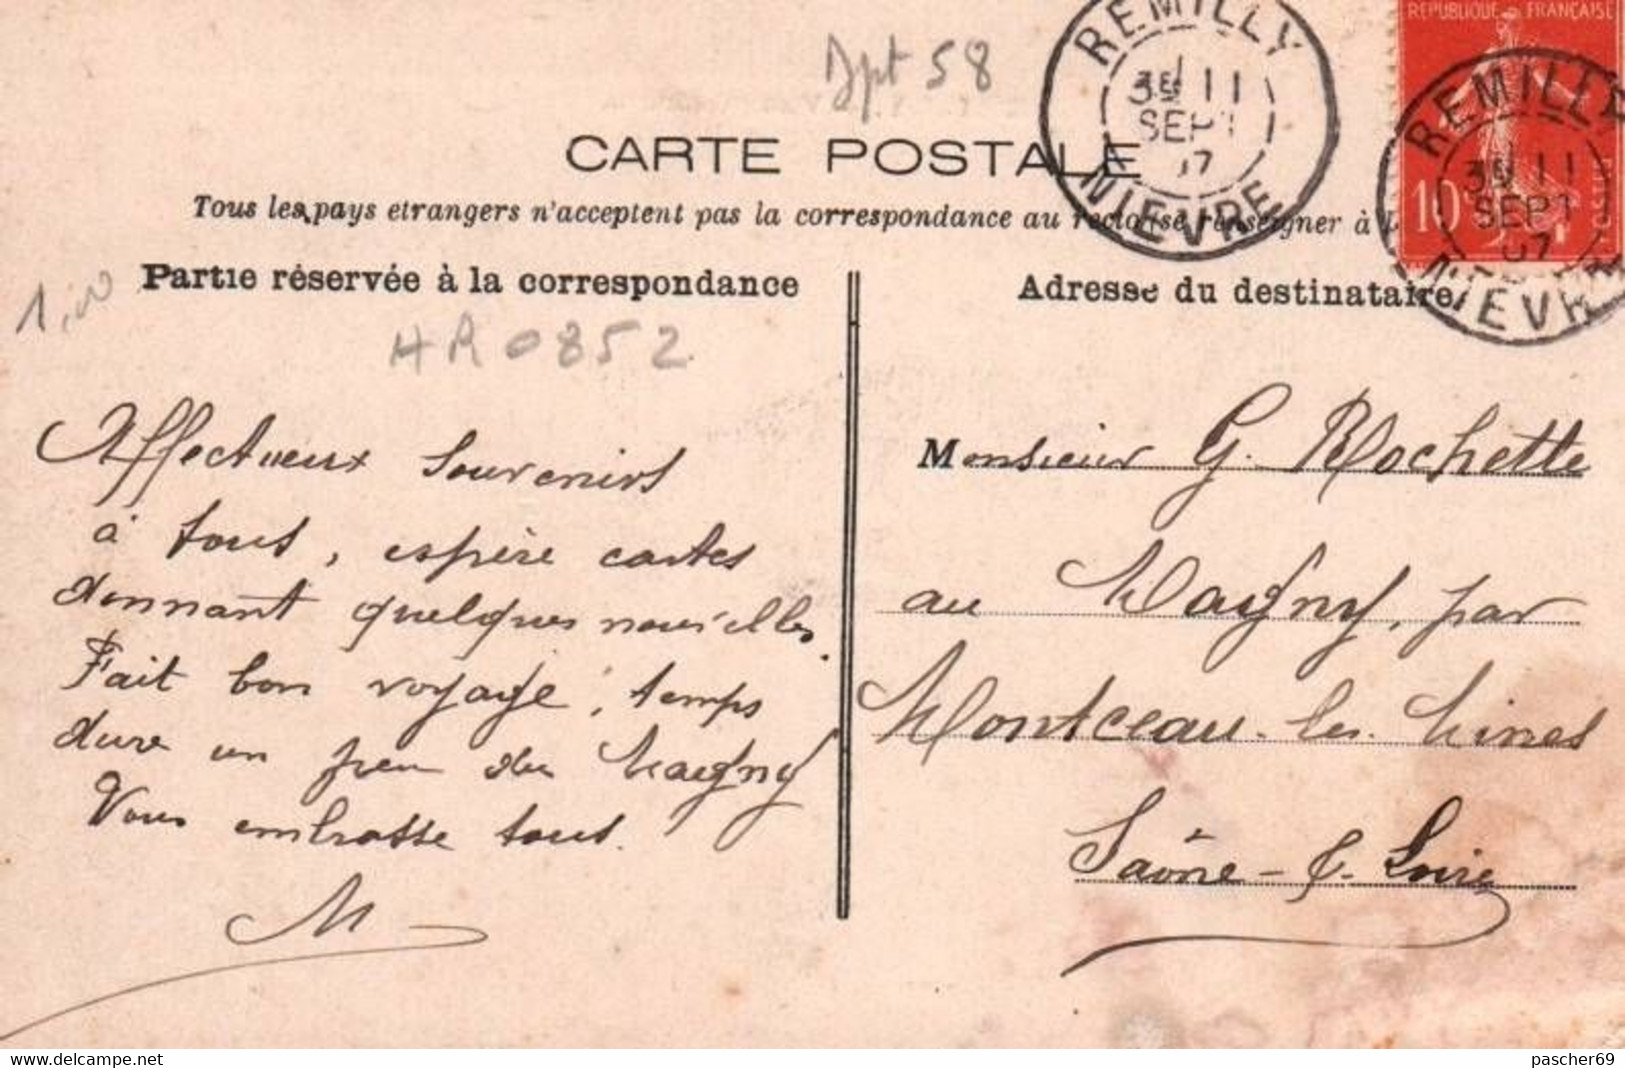 Dpt 58
REMILLY
3E 11
SEPT
07
NIEVRE
REPUBLIQUE FRANÇAISE
10c
REMILLY
3E 11
SEPT
07
NIEVRE
CARTE POSTALE
Tous les pays etrangers n'acceptent pas la correspondance au recto (se renseigner à
Partie réservée à la correspondance
Adresse du destinataire
HR 0852
Affectueux souvenirs
à tous, espère cartes
donnant quelques nouvelles.
Fait bon voyage, temps
dure un peu du Magny
Vous embrasse tous.
M
Monsieur G. Rochette
au Magny, par
Montceau-les-Mines
Saône-&-Loire
www.delcampe.net
pascher69